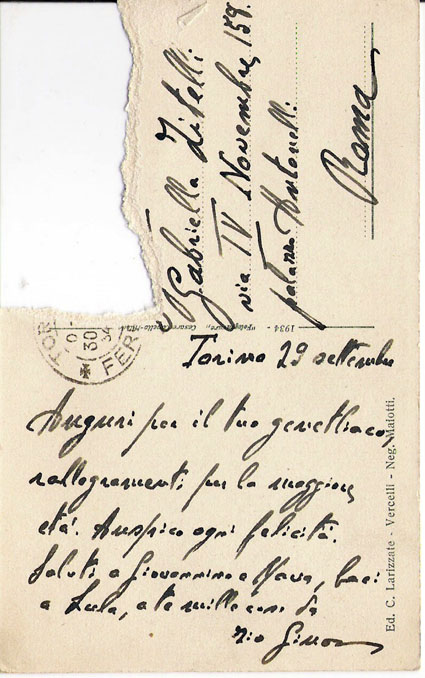 Gabriella Zitelli
via IV Novembre, 158.
palazzo Antonelli
Roma
1934 - "Fotogravure„ Cesare Capello -
TOR
30
34
FER
Torino 29 settembre
Auguri per il tuo genetliaco,
rallegramenti per la maggiore
età. Auspico ogni felicità.
Saluti a Giovannino e , baci
a Lula, a te mille cose da
zio Gino
Ed. C. Larizzate - Vercelli - Neg. Maiotti.